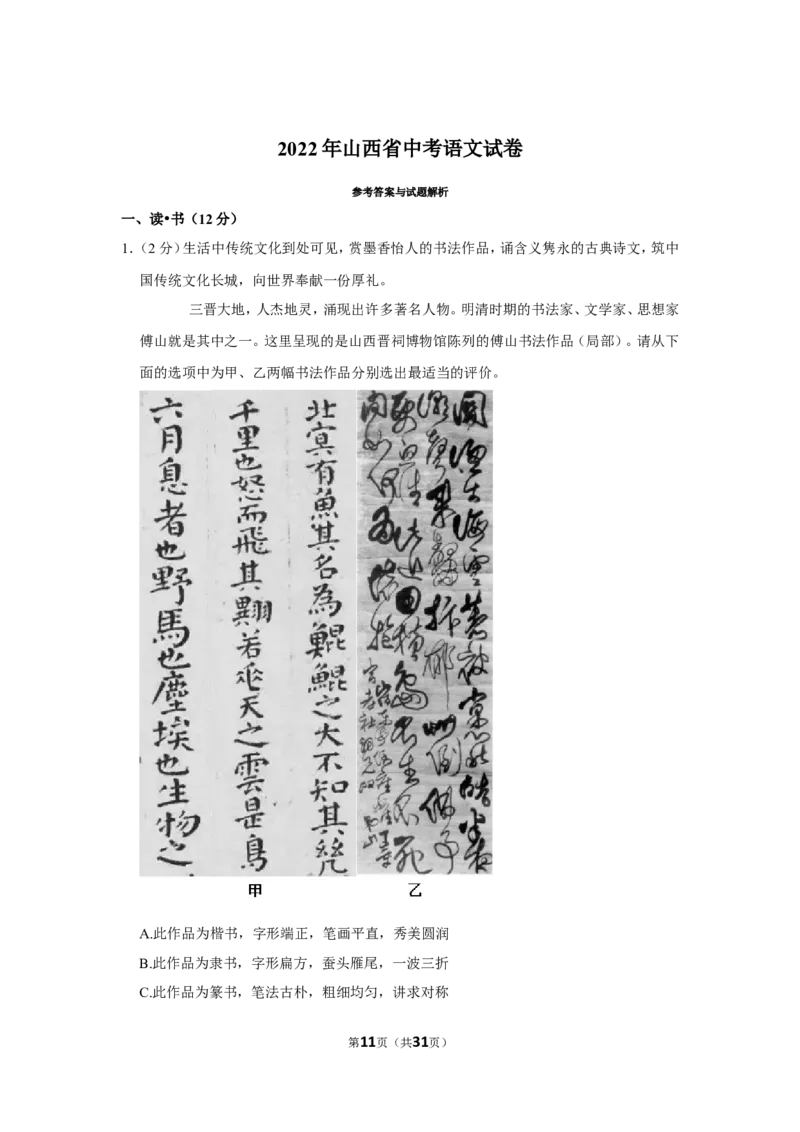 2022年山西省中考语文试卷
参考答案与试题解析
一、读•书（12分）
1．（2分）生活中传统文化到处可见，赏墨香怡人的书法作品，诵含义隽永的古典诗文，筑中
国传统文化长城，向世界奉献一份厚礼。
三晋大地，人杰地灵，涌现出许多著名人物。明清时期的书法家、文学家、思想家
傅山就是其中之一。这里呈现的是山西晋祠博物馆陈列的傅山书法作品（局部）。请从下
面的选项中为甲、乙两幅书法作品分别选出最适当的评价。
北冥有魚其名為鯤鯤之大不知其幾
千里也怒而飛其翼若垂天之雲是鳥
六月息者也野馬也塵埃也生物之
甲
乙
A.此作品为楷书，字形端正，笔画平直，秀美圆润
B.此作品为隶书，字形扁方，蚕头雁尾，一波三折
C.此作品为篆书，笔法古朴，粗细均匀，讲求对称
第11页（共31页）